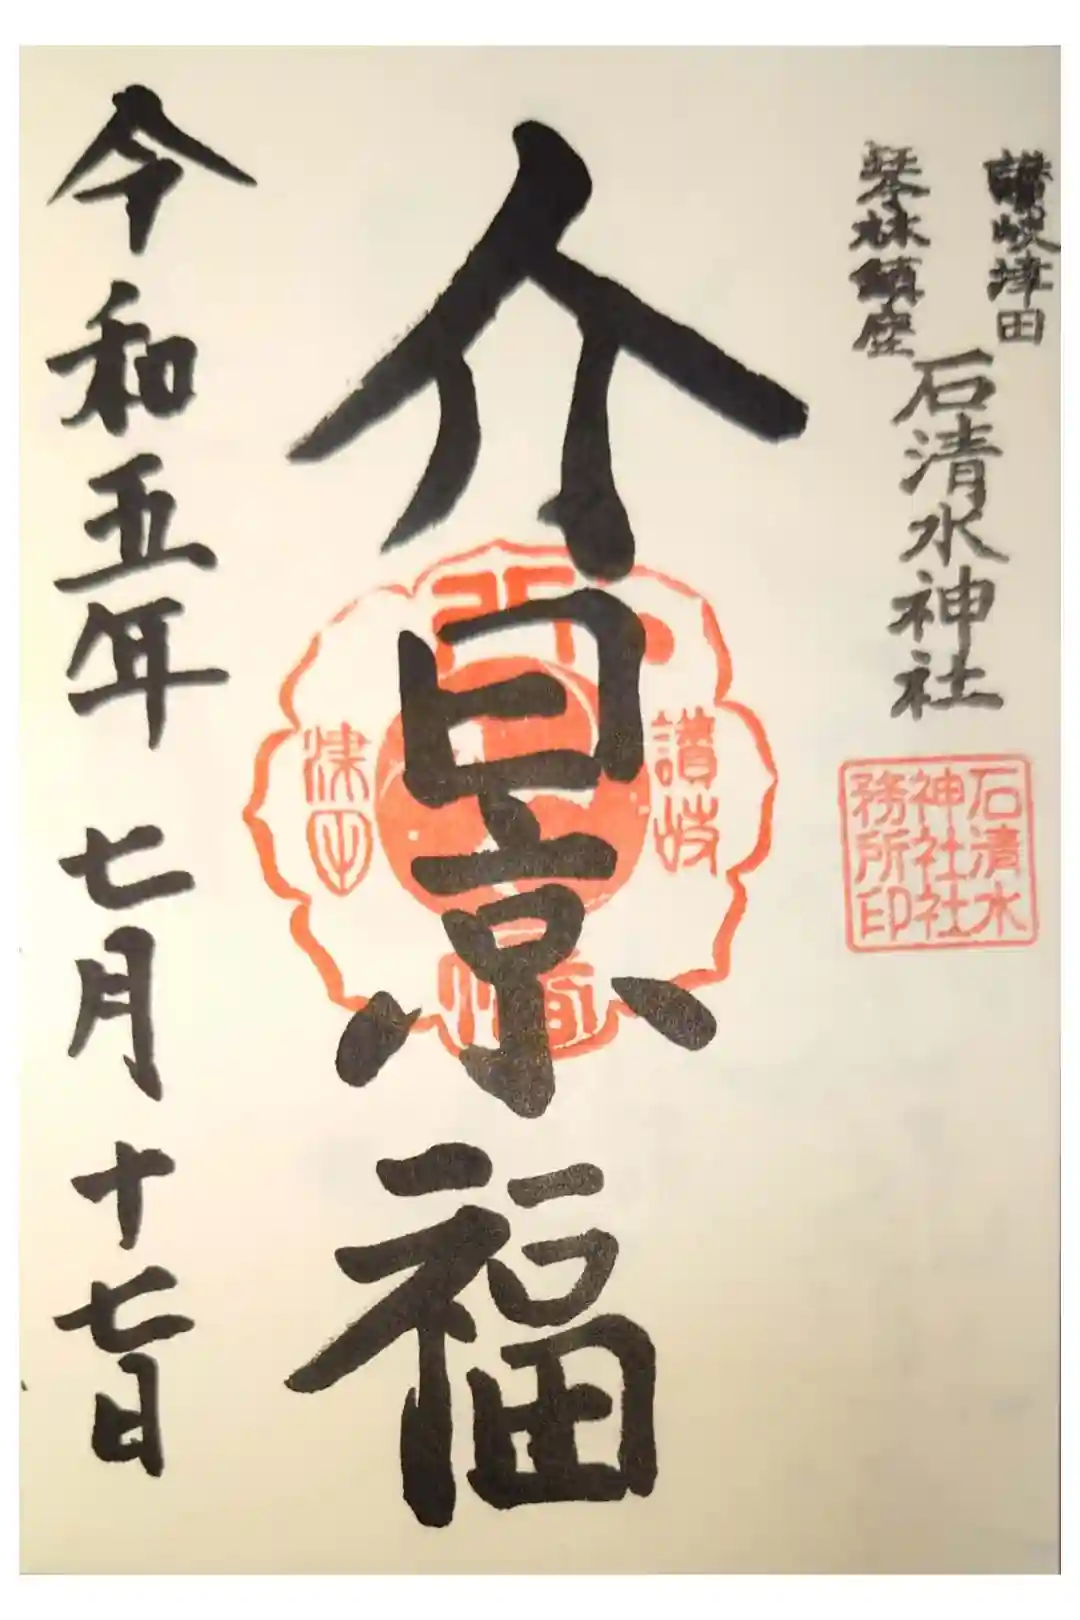 讃岐津田
琴林鎮座
石清水神社
石清水
神社社
務所印
介景福
讃岐
津田
令和五年 七月十七日